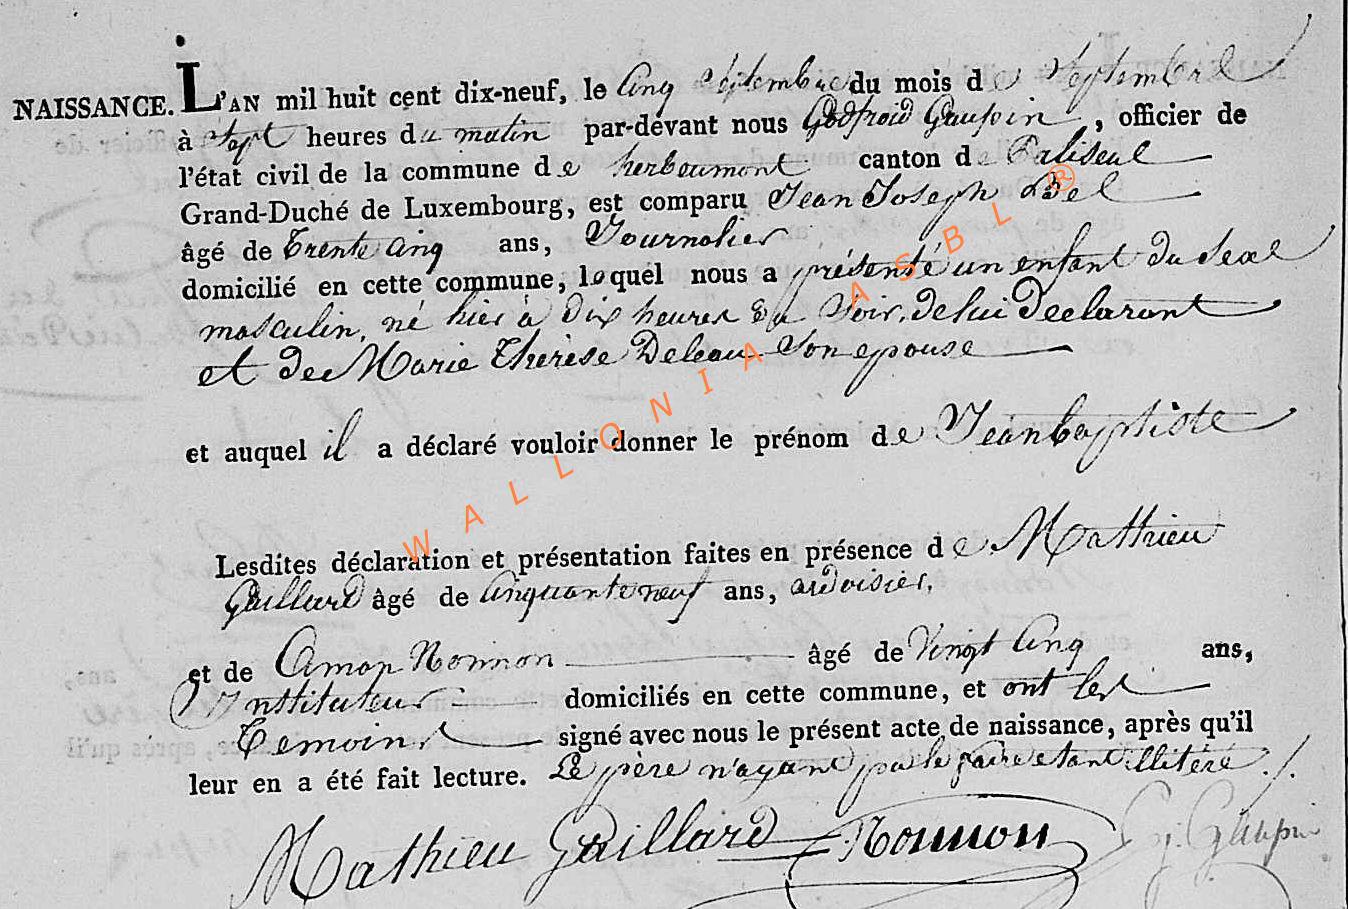 NAISSANCE. L'AN mil huit cent dix-neuf, le cinq septembre du mois de septembre
à sept heures du matin par-devant nous Godfroid Gaupin, officier de
l'état civil de la commune de herbeumont canton de Paliseul
Grand-Duché de Luxembourg, est comparu Jean Joseph Abel
âgé de trente cinq ans, Journalier
domicilié en cette commune, lequel nous a présenté un enfant du sexe
masculin, né hier à dix heures du soir, de lui Declarant
et de Marie thérèse Deleau son epouse
et auquel il a déclaré vouloir donner le prénom de Jean baptiste
Lesdites déclaration et présentation faites en présence de Mathieu
Gaillard âgé de cinquante neuf ans, ardoisier,
et de Amon Nonnon âgé de vingt cinq ans,
Instituteur domiciliés en cette commune, et ont les
temoins signé avec nous le présent acte de naissance, après qu'il
leur en a été fait lecture. Le père n'ayant pu le faire etant illitéré ./.
Mathieu Gaillard Nonnon G. Gaupin
WALLONIA ASBL ®